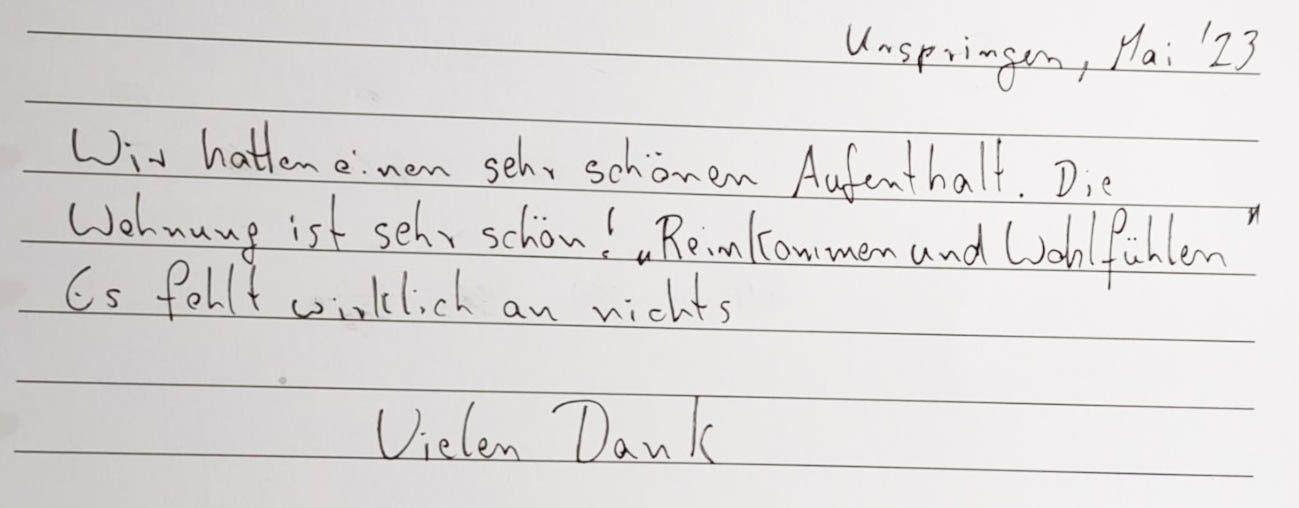 Urspringen, Mai '23
Wir hatten einen sehr schönen Aufenthalt. Die
Wohnung ist sehr schön! „Reinkommen und Wohlfühlen"
Es fehlt wirklich an nichts
Vielen Dank